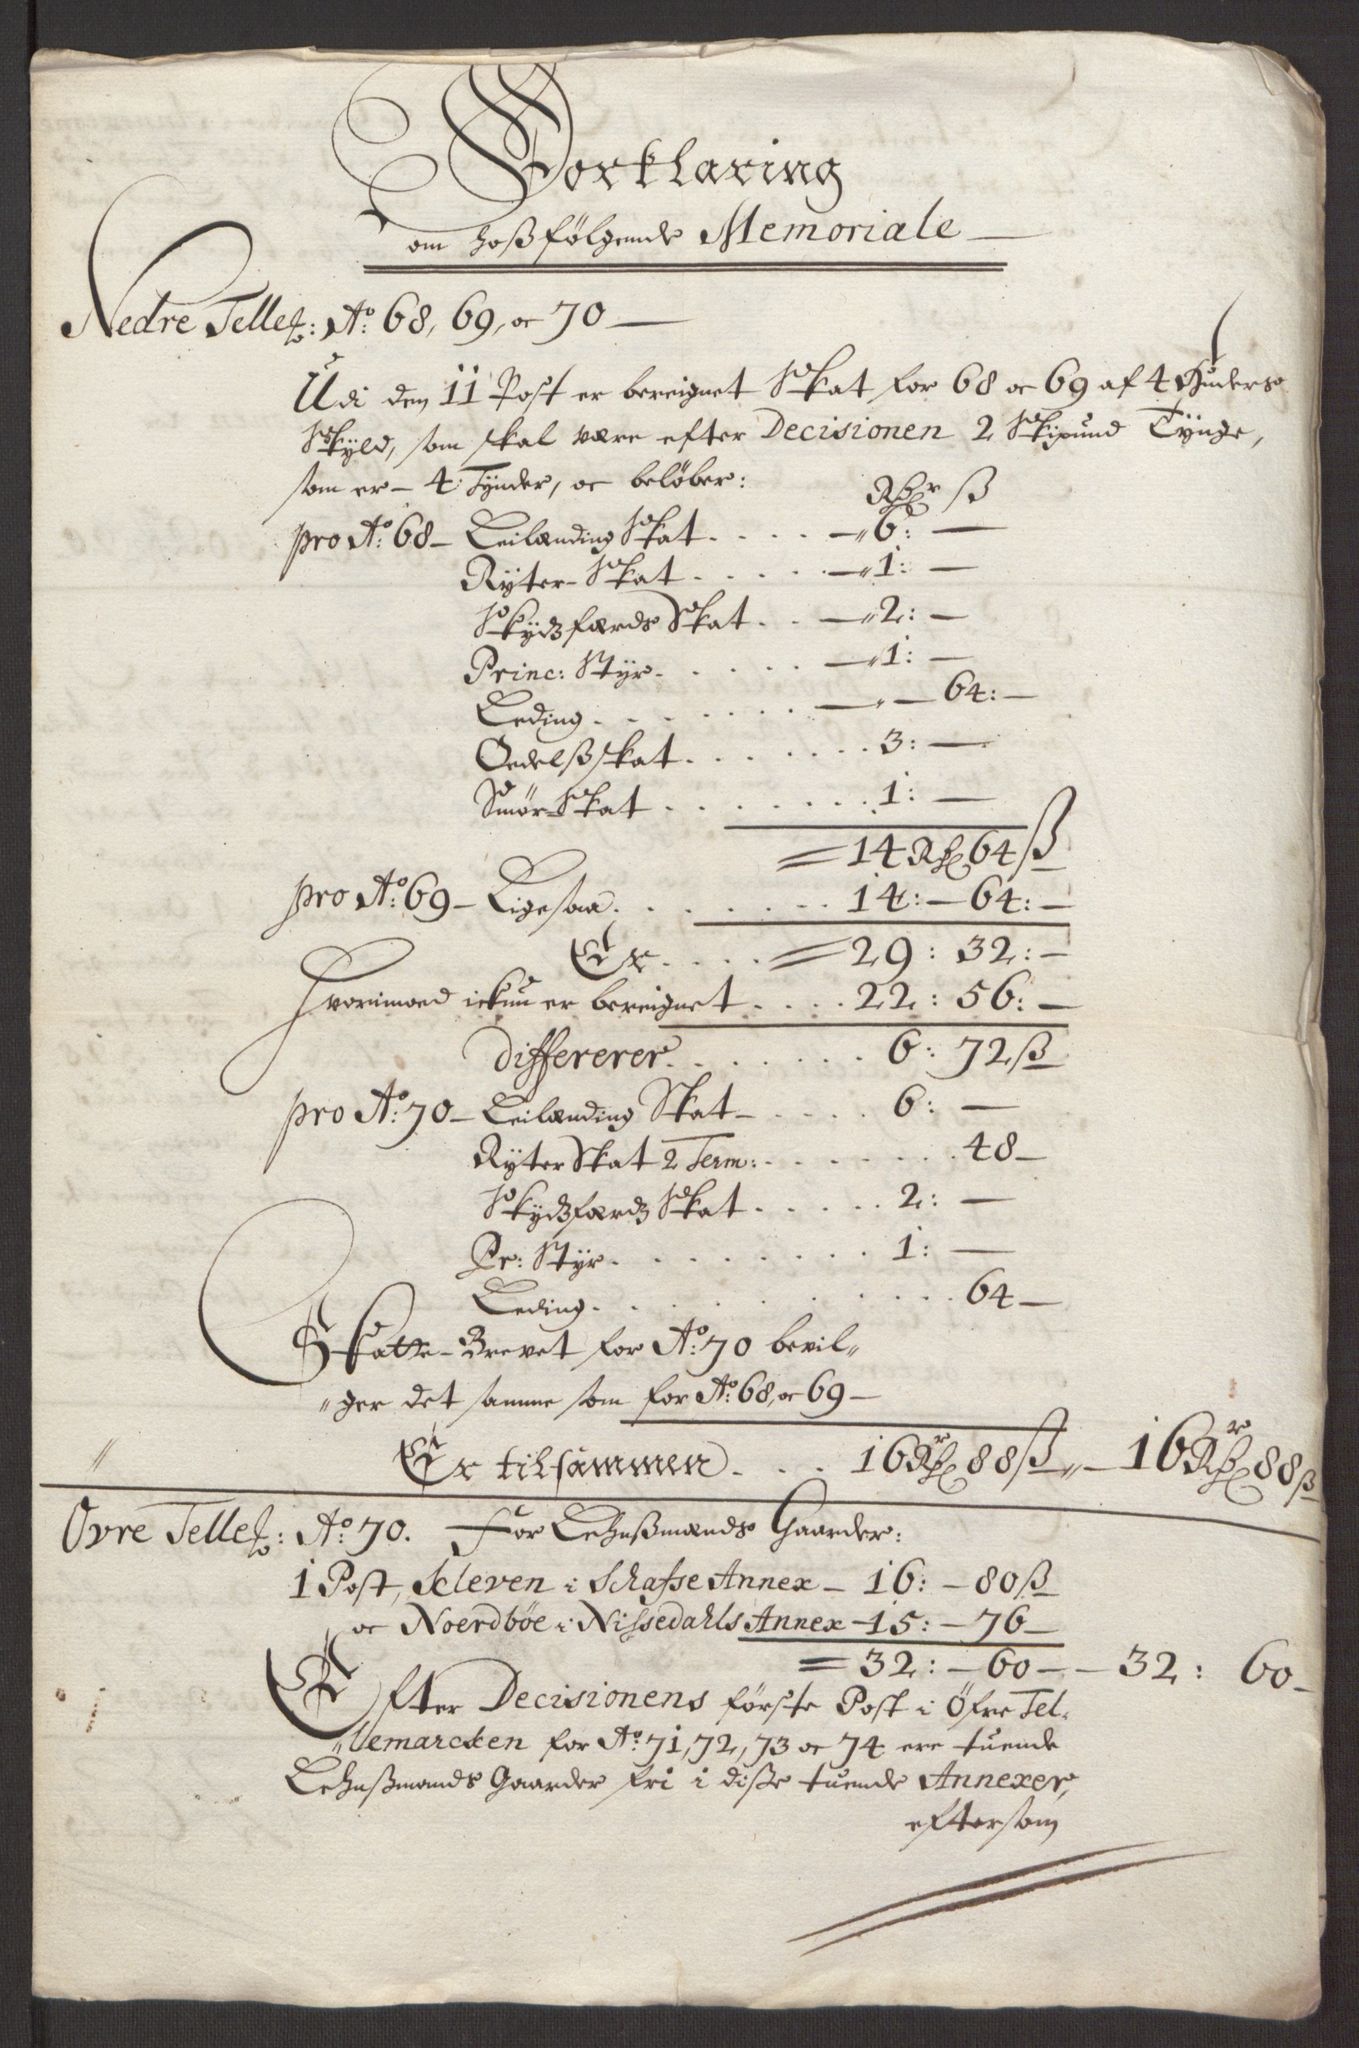 Forklaring
om hoßfølgende Memoriale
Nedre Telle: Ao: 68, 69, oc 70
Udi den 11 Post er bereignet Skat for 68 oc 69 af 4 Huders
Skyld, som skal være efter Decisionen 2 Skipund Tynge,
som er 4 Tynder, oc beløber: Rdr ß
pro Ao: 68 Leilænding Skat . . . . 6: —
Ryter-Skat . . . . . 1: —
Skydzfærds Skat . . 2: —
Princ: Styr . . . . . 1: —
Leding . . . . . . . — 64: —
Oedelßskat . . . . . . . 3: —
Smør-Skat . . . . . . . . 1: —
= 14 Rd 64 ß
pro Ao: 69 Ligesaa . . . . . . . 14: — 64: —
Er . . . . = 29: 32: —
Hvorimoed ickun er bereignet . . . . 22: 56: —
differerer . . . . . . . 6: 72 ß
pro Ao: 70 Leilænding Skat . . . . 6: —
Ryter Skat 2 Term: . . . . . . . 48 —
Skydzfærdz Skat . . . . . 2: —
Pr: Styr . . . . . . . . 1: —
Leding . . . . . . . . . . 64 —
Skatte-Brevet for Ao: 70 bevil„
„ger det samme som for Ao: 68, oc 69 —
„ Er tilsammen . . . 16 Rdr 88 ß „— 16 Rdr 88 ß
Øvre Telle: Ao 70. For Lehnßmænds Gaarder:
1 Post, Kleven i Schafse Annex — 16: — 80 ß
oc Noerdbøe i Nissedahls Annex — 15: — 76 —
= 32: — 60 — — 32: 60 —
Efter Decisionens første Post i Øfre Tel„
„lemarcken for Ao: 71, 72, 73 oc 74 ere tuende
Lehnßmands Gaarder fri i diße tuende Annexer,
eftersom